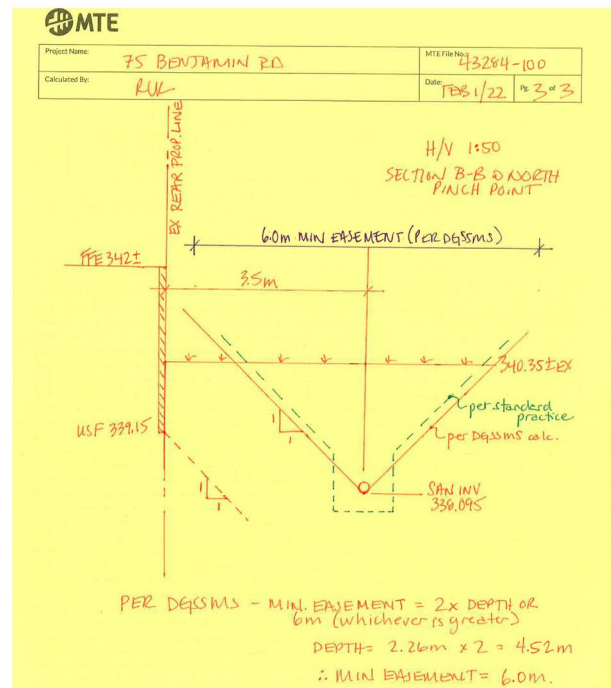 MTE
Project Name: 75 BENJAMIN RD
MTE File No.: 43284-100
Calculated By: RUK
Date: FEB 1/22 Pg. 3 of 3
EX REAR PROP. LINE
H/V 1:50
SECTION B-B @ NORTH
PINCH POINT
6.0m MIN EASEMENT (PER DGSSMS)
FFE 342±
3.5m
340.35± EX
per standard
practice
per DGSSMS calc.
USF 339.15
1
1
1
1
SAN INV
338.095
PER DGSSMS - MIN. EASEMENT = 2x DEPTH OR
6m (whichever is greater)
DEPTH = 2.26m x 2 = 4.52m
∴ MIN EASEMENT = 6.0m.